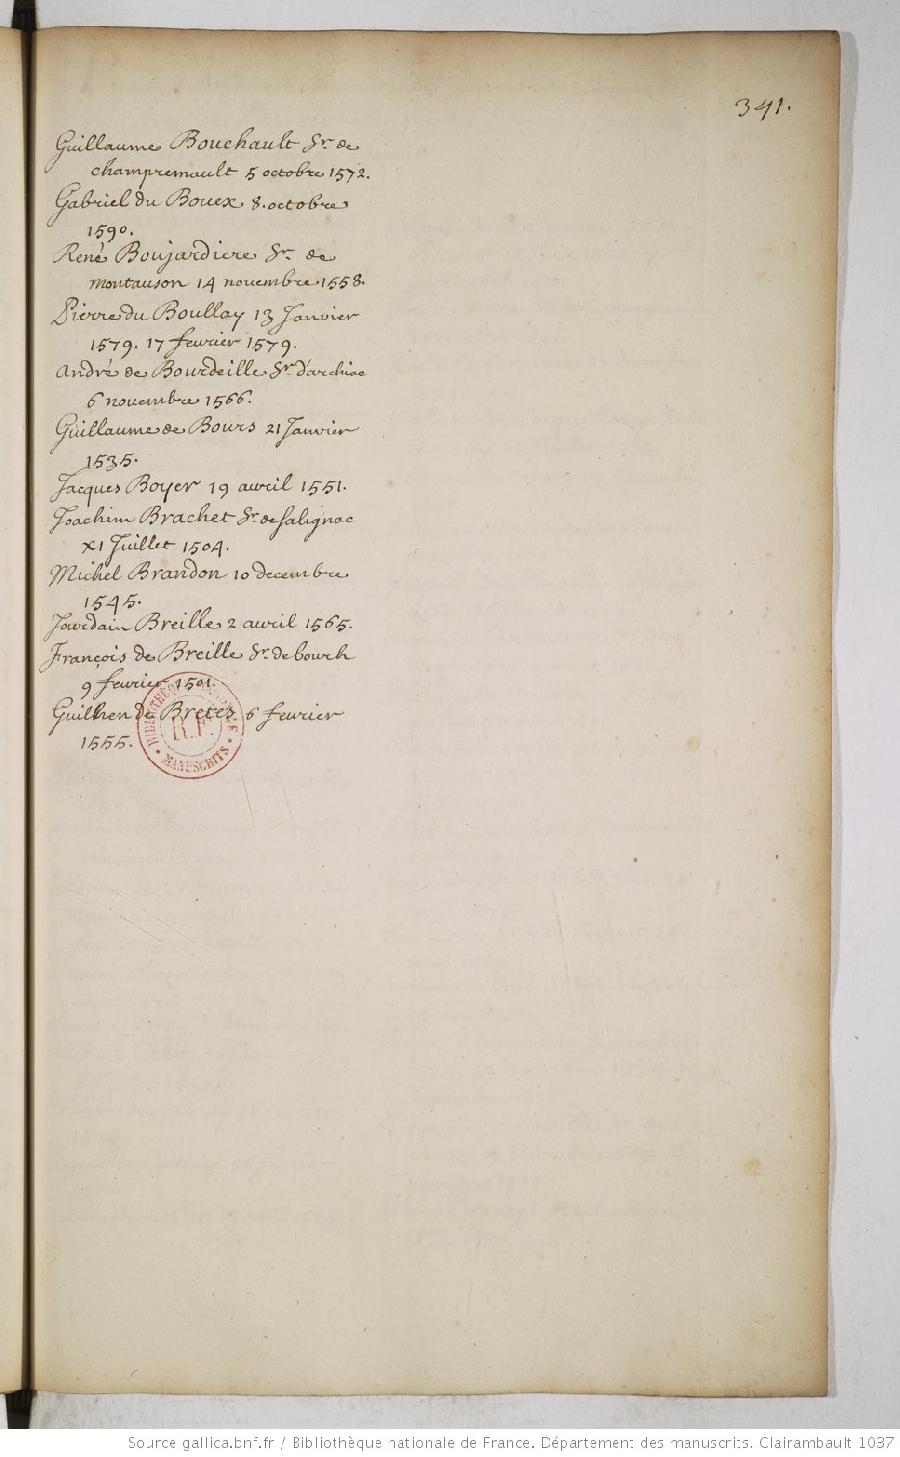 341.
Guillaume Bouchault Sr. de
champremault 5 octobre 1572.
Gabriel du Bouex 8. octobre
1590.
René Boujardiere Sr. de
montauson 14 novembre 1558.
Pierre du Boullay 13 Janvier
1579. 17 fevrier 1579.
André de Bourdeille Sr. d'archiac
6 novembre 1566.
Guillaume de Bours 21 Janvier
1535.
Jacques Boyer 19 avril 1551.
Joachim Brachet Sr. de salignac
XI Juillet 1504.
Michel Brandon 10 decembre
1545.
Jourdain Breille 2 avril 1565.
François de Breille Sr. de bourch
9 fevrier 1501.
Guilhen de Bretes 6 fevrier
1555.
R.F.
MANUSCRITS
Source gallica.bnf.fr / Bibliothèque nationale de France. Département des manuscrits. Clairambault 1037